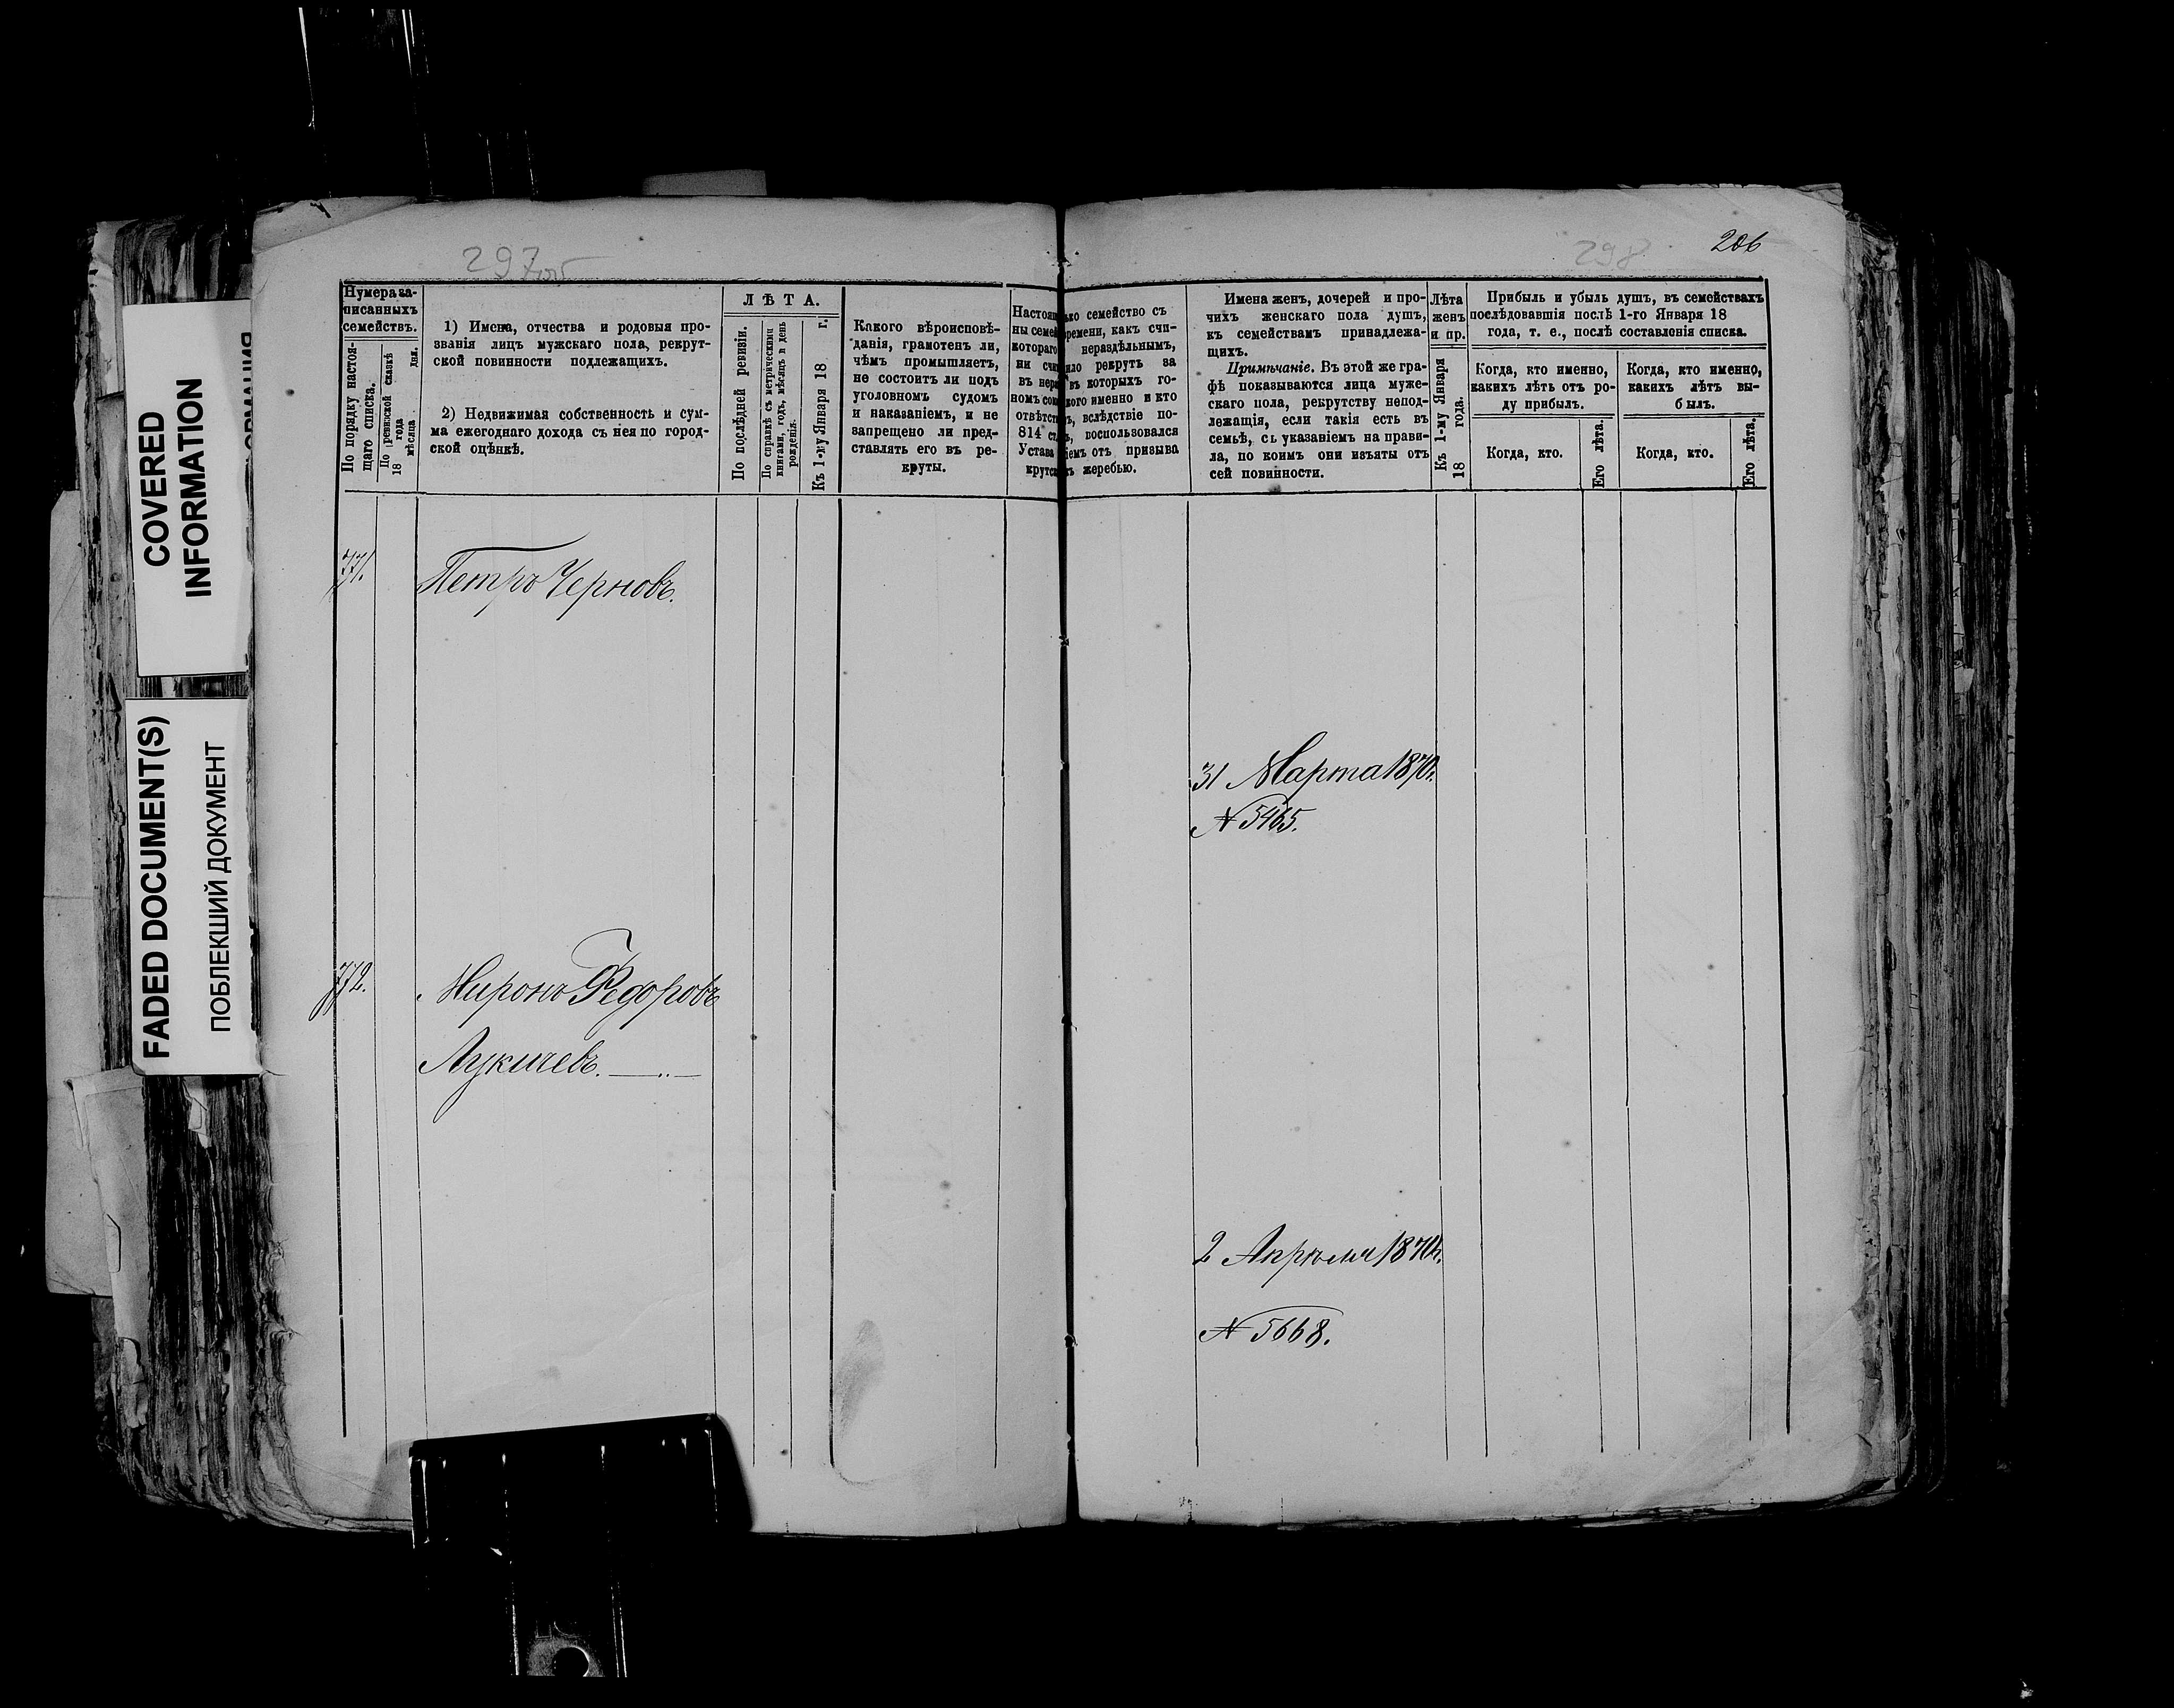 COVERED
INFORMATION
FADED DOCUMENT(S)
ПОБЛЕКШИЙ ДОКУМЕНТ
297об
Нумера за-
писанныхъ
семействъ.
По порядку настоя-
щаго списка.
По ревизской сказкѣ
18 года
мѣсяца дня.
1) Имена, отчества и родовыя про-
званія лицъ мужскаго пола, рекрут-
ской повинности подлежащихъ.
2) Недвижимая собственность и сум-
ма ежегоднаго дохода съ нея по город-
ской оцѣнкѣ.
ЛѢТА.
По послѣдней ревизіи.
По справкѣ съ метрическими
книгами, годъ, мѣсяцъ и день
рожденія.
Къ 1-му Января 18 г.
Какого вѣроисповѣ-
данія, грамотенъ ли,
чѣмъ промышляетъ,
не состоитъ ли подъ
уголовномъ судомъ
и наказаніемъ, и не
запрещено ли пред-
ставлять его въ ре-
круты.
771.
Петръ Черновъ.
772.
Миронъ Федоровъ
Лукичевъ.
298
206
семейство съ
времени, какъ счи-
нераздѣльнымъ,
рекрутъ за
въ которыхъ го-
именно и кто
вслѣдствіе по-
воспользовался
отъ призыва
жеребью.
Имена женъ, дочерей и про-
чихъ женскаго пола душъ,
къ семействамъ принадлежа-
щихъ.
Примѣчаніе. Въ этой же гра-
фѣ показываются лица муже-
скаго пола, рекрутству непод-
лежащія, если такія есть въ
семьѣ, съ указаніемъ на прави-
ла, по коимъ они изъяты отъ
сей повинности.
Лѣта
женъ
и пр.
Къ 1-му Января
18 года.
Прибыль и убыль душъ, въ семействахъ
послѣдовавшія послѣ 1-го Января 18
года, т. е., послѣ составленія списка.
Когда, кто именно,
какихъ лѣтъ отъ ро-
ду прибылъ.
Когда, кто именно,
какихъ лѣтъ вы-
былъ.
Когда, кто.
Его лѣта.
Когда, кто.
Его лѣта.
31 Марта 1870г.
№ 5465.
2 Апрѣля 1870г.
№ 5668.